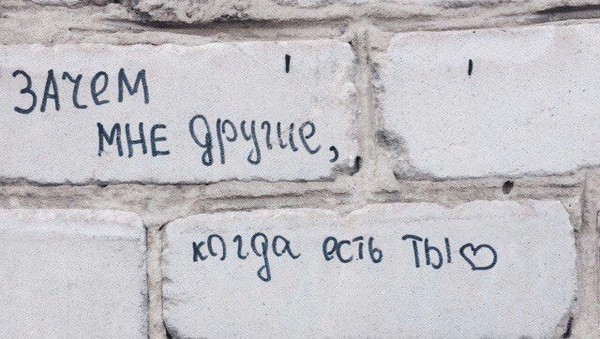 ЗАЧЕМ
МНЕ другие,
когда есть ТЫ♡